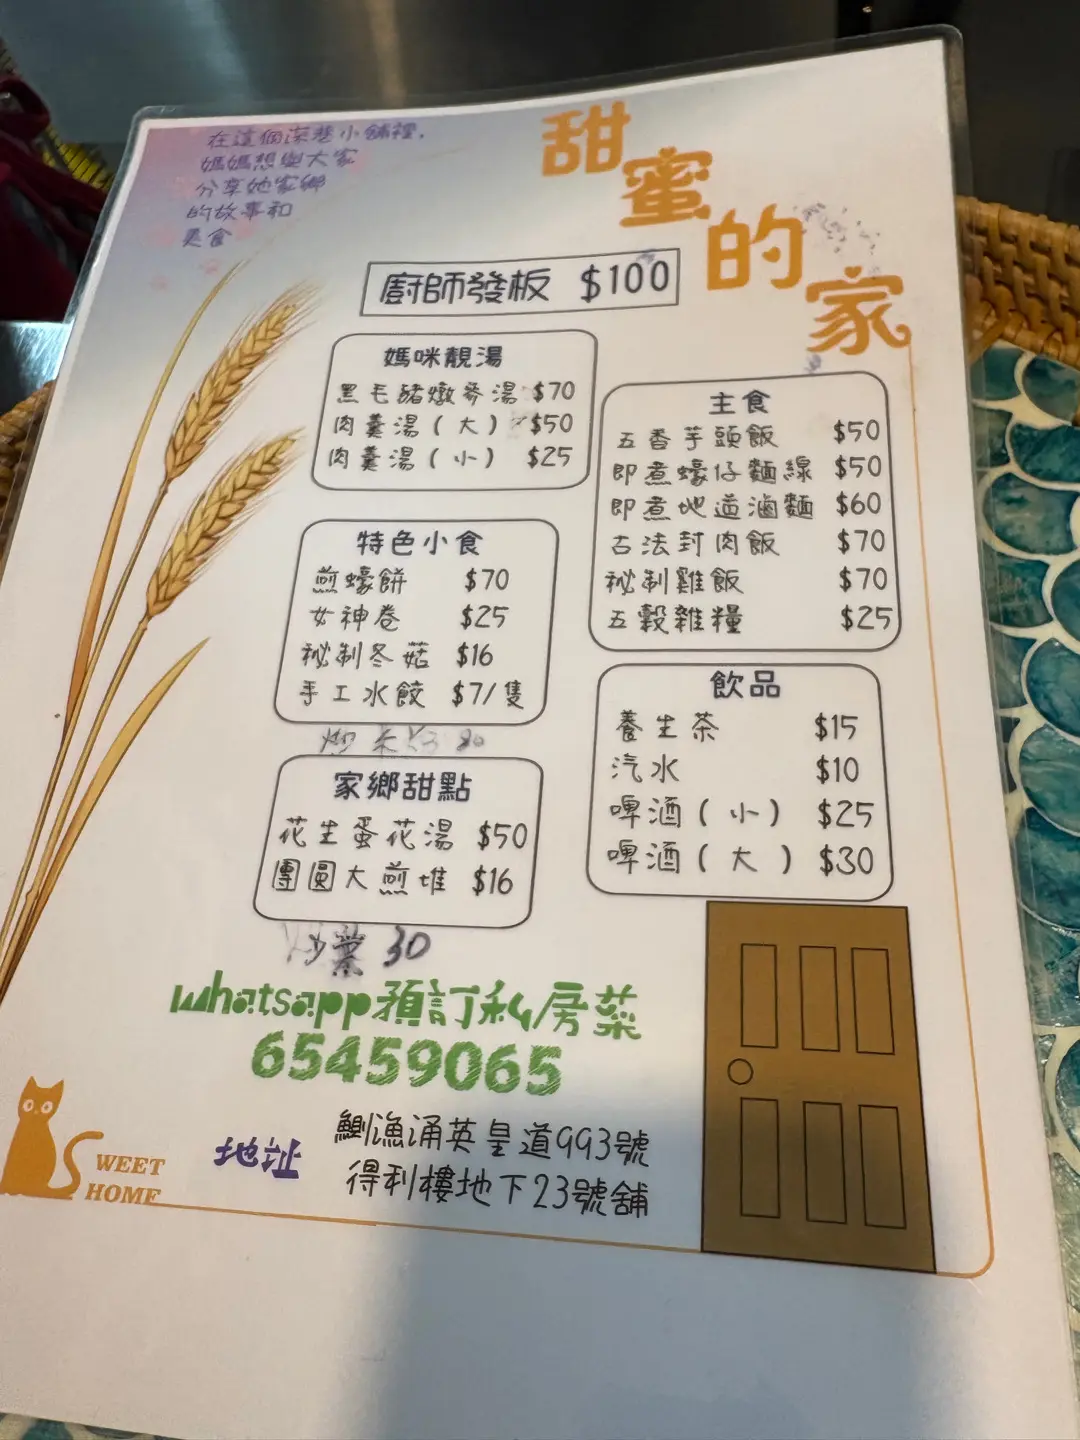 在這個深巷小舖裡，
媽媽想與大家
分享她家鄉
的故事和
美食
甜蜜的家
廚師發板 $100
媽咪靚湯
黑毛豬燉參湯 $70
肉羹湯(大) $50
肉羹湯(小) $25
特色小食
煎蠔餅 $70
女神卷 $25
秘制冬菇 $16
手工水餃 $7/隻
炒 80
家鄉甜點
花生蛋花湯 $50
團圓大煎堆 $16
炒 30
主食
五香芋頭飯 $50
即煮蠔仔麵線 $50
即煮地道滷麵 $60
古法封肉飯 $70
秘制雞飯 $70
五穀雜糧 $25
飲品
養生茶 $15
汽水 $10
啤酒(小) $25
啤酒(大) $30
whatsapp預訂私房菜
65459065
地址
鰂漁涌英皇道993號
得利樓地下23號舖
SWEET
HOME